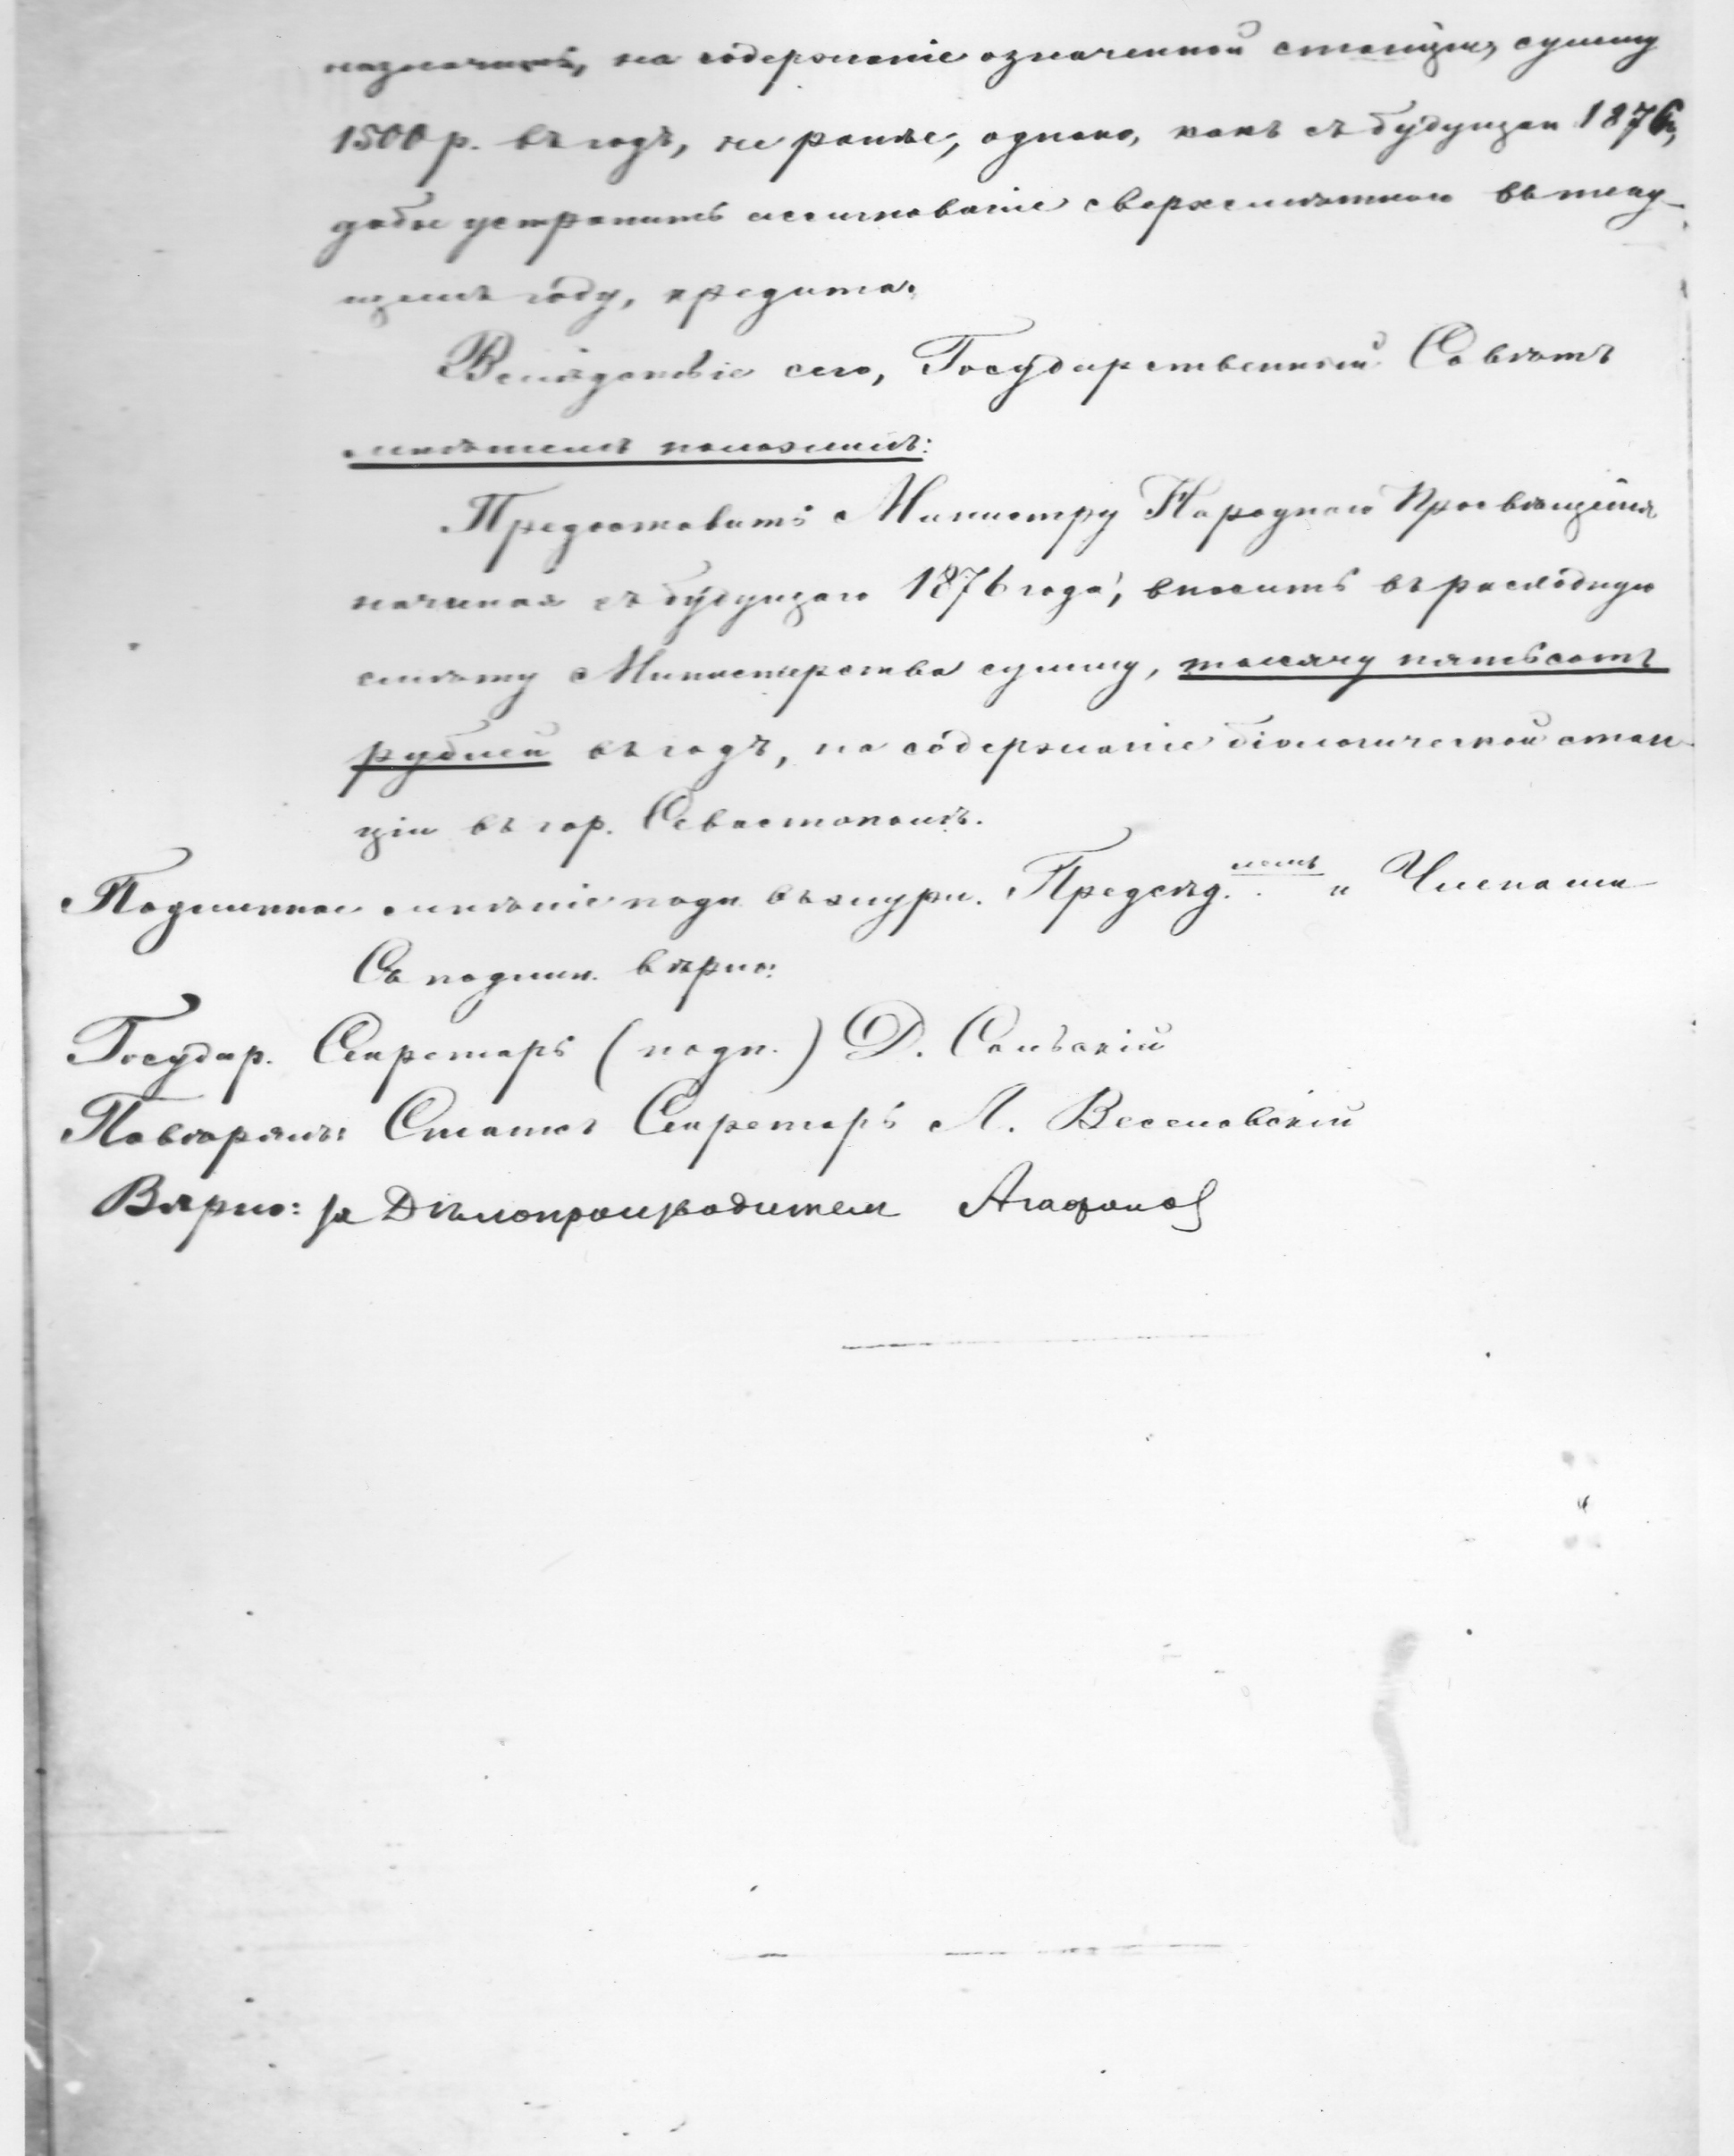 назначить, на содержаніе означенной станціи, сумму
1500 р. въ годъ, не ранѣе, однако, какъ съ будущаго 1876 г.,
дабы устранить ассигнованіе сверхсмѣтнаго въ теку-
щемъ году, кредита.
Вслѣдствіе сего, Государственный Совѣтъ
мнѣніемъ положилъ:
Предоставить Министру Народнаго Просвѣщенія
начиная съ будущаго 1876 года, вносить въ расходную
смѣту Министерства сумму, тысячу пятьсотъ
рублей въ годъ, на содержаніе біологической стан-
ціи въ гор. Севастополѣ.
Подлинное мнѣніе подп. въ журн. Предсѣд. и Членами
Съ подлин. вѣрно:
Государ. Секретарь (подп.) Д. Сольскій
Повѣрялъ: Статсъ Секретарь Л. Веселовскій
Вѣрно: за Дѣлопроизводителя Агафонов